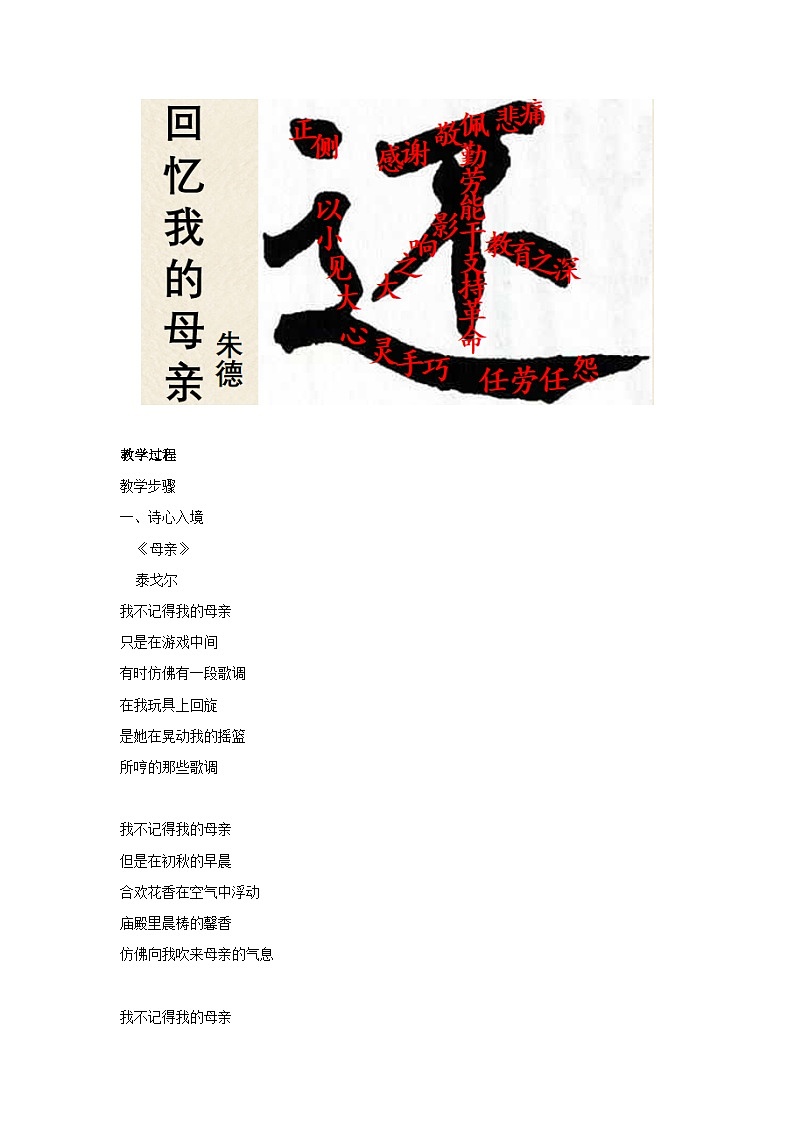 回忆我的母亲
朱德
还
正侧
感谢
敬佩
悲痛
勤劳能干支持革命
影响之大
教育之深
以小见大
心灵手巧
任劳任怨
教学过程
教学步骤
一、诗心入境
《母亲》
泰戈尔
我不记得我的母亲
只是在游戏中间
有时仿佛有一段歌调
在我玩具上回旋
是她在晃动我的摇篮
所哼的那些歌调
我不记得我的母亲
但是在初秋的早晨
合欢花香在空气中浮动
庙殿里晨梼的馨香
仿佛向我吹来母亲的气息
我不记得我的母亲